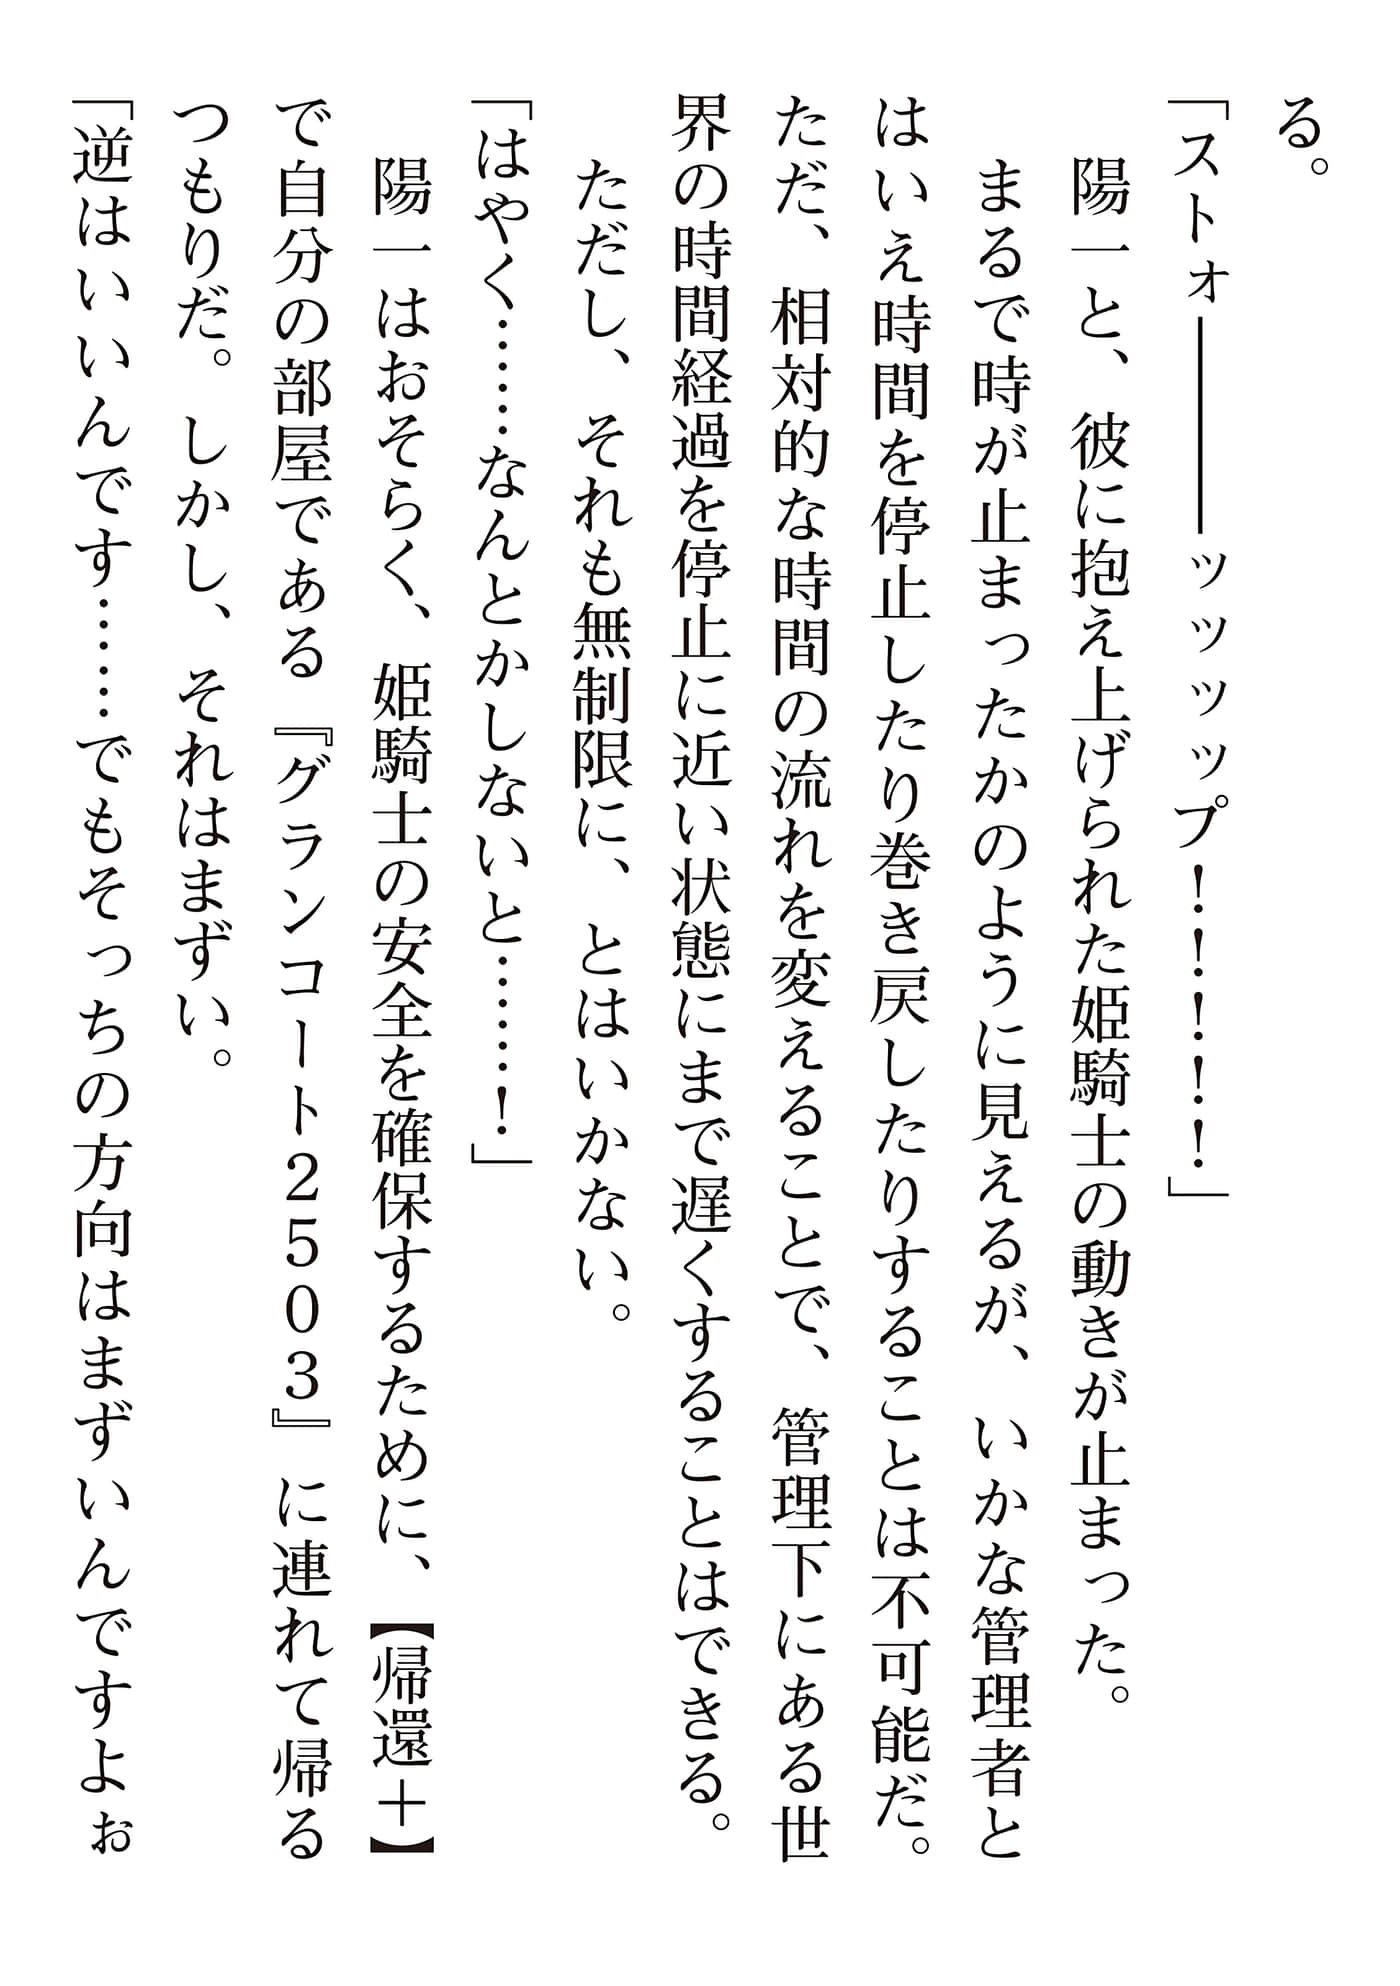 る。
「ストォ――――ッッッップ！！！！！」
　陽一と、彼に抱え上げられた姫騎士の動きが止まった。
　まるで時が止まったかのように見えるが、いかな管理者と
はいえ時間を停止したり巻き戻したりすることは不可能だ。
ただ、相対的な時間の流れを変えることで、管理下にある世
界の時間経過を停止に近い状態にまで遅くすることはできる。
　ただし、それも無制限に、とはいかない。
「はやく……なんとかしないと……！」
　陽一はおそらく、姫騎士の安全を確保するために、【帰還＋】
で自分の部屋である『グランコート２５０３』に連れて帰る
つもりだ。しかし、それはまずい。
「逆はいいんです……でもそっちの方向はまずいんですよぉ